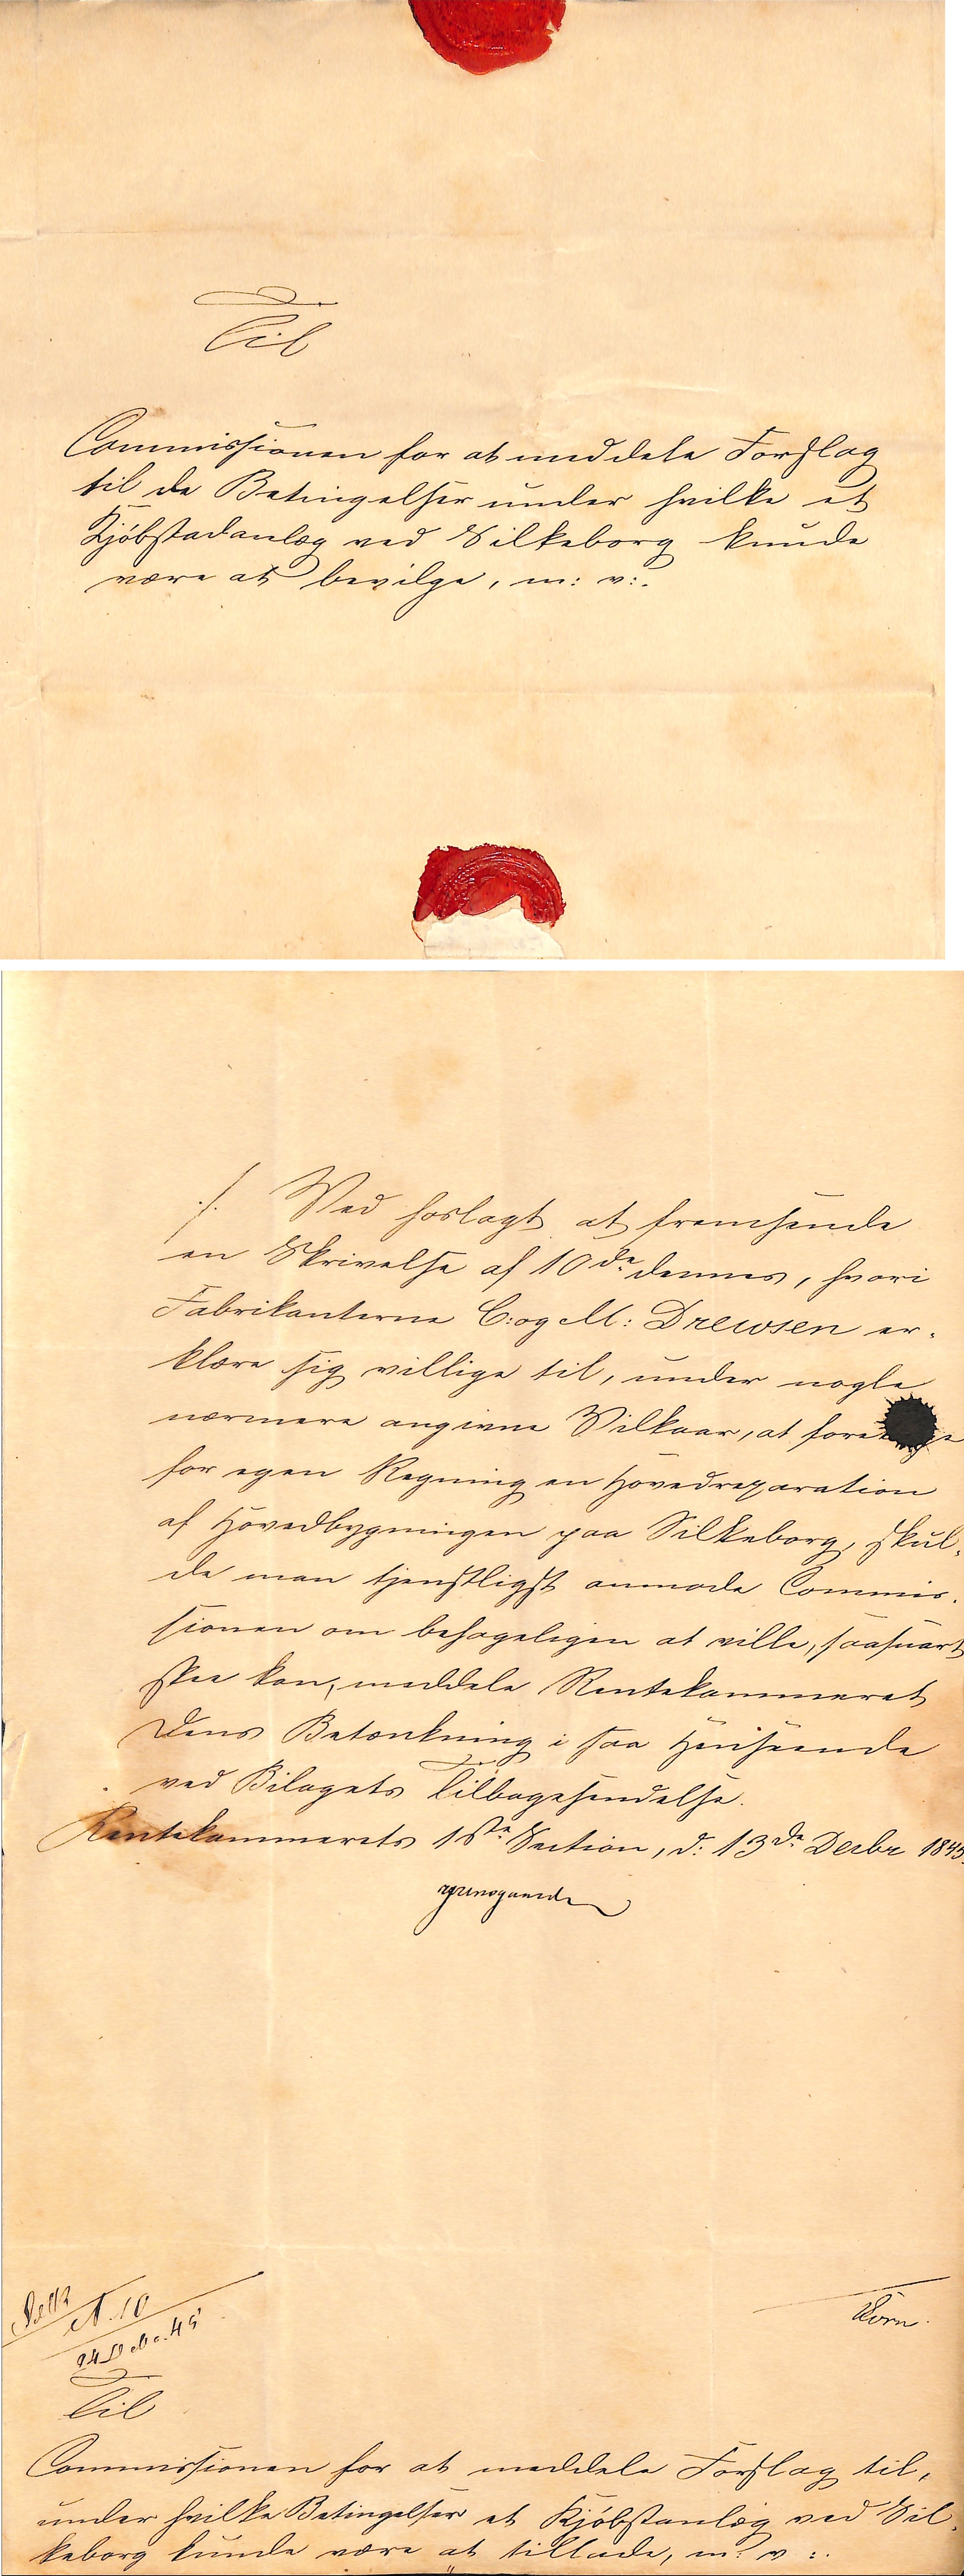 Til
Commissionen for at meddele Forslag
til de Betingelser under hvilke et
Kjøbstadanlæg ved Silkeborg kunde
være at bevilge, m: v:.
./. Ved hoslagt at fremsende
en Skrivelse af 10de dennes, hvori
Fabrikanterne C: og M: Drewsen er-
klære sig villige til, under nogle
nærmere angivne Vilkaar, at foretage
for egen Regning en Hovedreparation
af Hovedbygningen paa Silkeborg, skul-
de man tjenstligst anmode Commis-
sionen om behageligen at ville, saasnart
skee kan, meddele Rentekammeret
Dens Betænkning i saa Henseende
ved Bilagets Tilbagesendelse.
Rentekammerets 1ste Section, d: 13de Decbr 1845.
N. 10
24 Decbr. 45
Til
Commissionen for at meddele Forslag til,
under hvilke Betingelser et Kjøbstanlæg ved Sil-
keborg kunde være at tillade, m: v:.